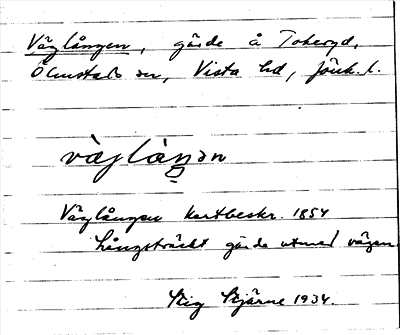 Väglången, gärde å Toheryd,
Ölmstads sn, Vista hd, Jönk. l.
vàglàŋən
Väglången kartbeskr. 1854
Långsträckt gärde utmed vägen
Stig Stjärne 1934.